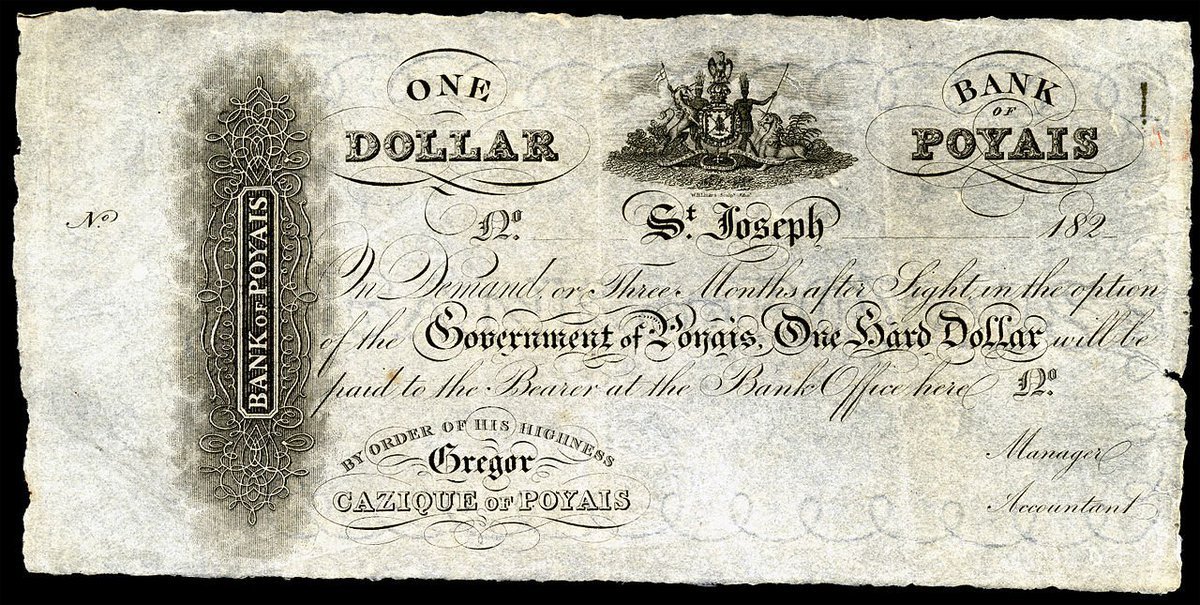 ONE
DOLLAR
BANK
OF
POYAIS
Nº
Nº.
St. Joseph
182
On Demand, or Three Months after Sight, in the option
of the Government of Poyais, One Hard Dollar will be
paid to the Bearer at the Bank Office here Nº.
BY ORDER OF HIS HIGHNESS
Gregor
CAZIQUE OF POYAIS
Manager
Accountant
BANK OF POYAIS